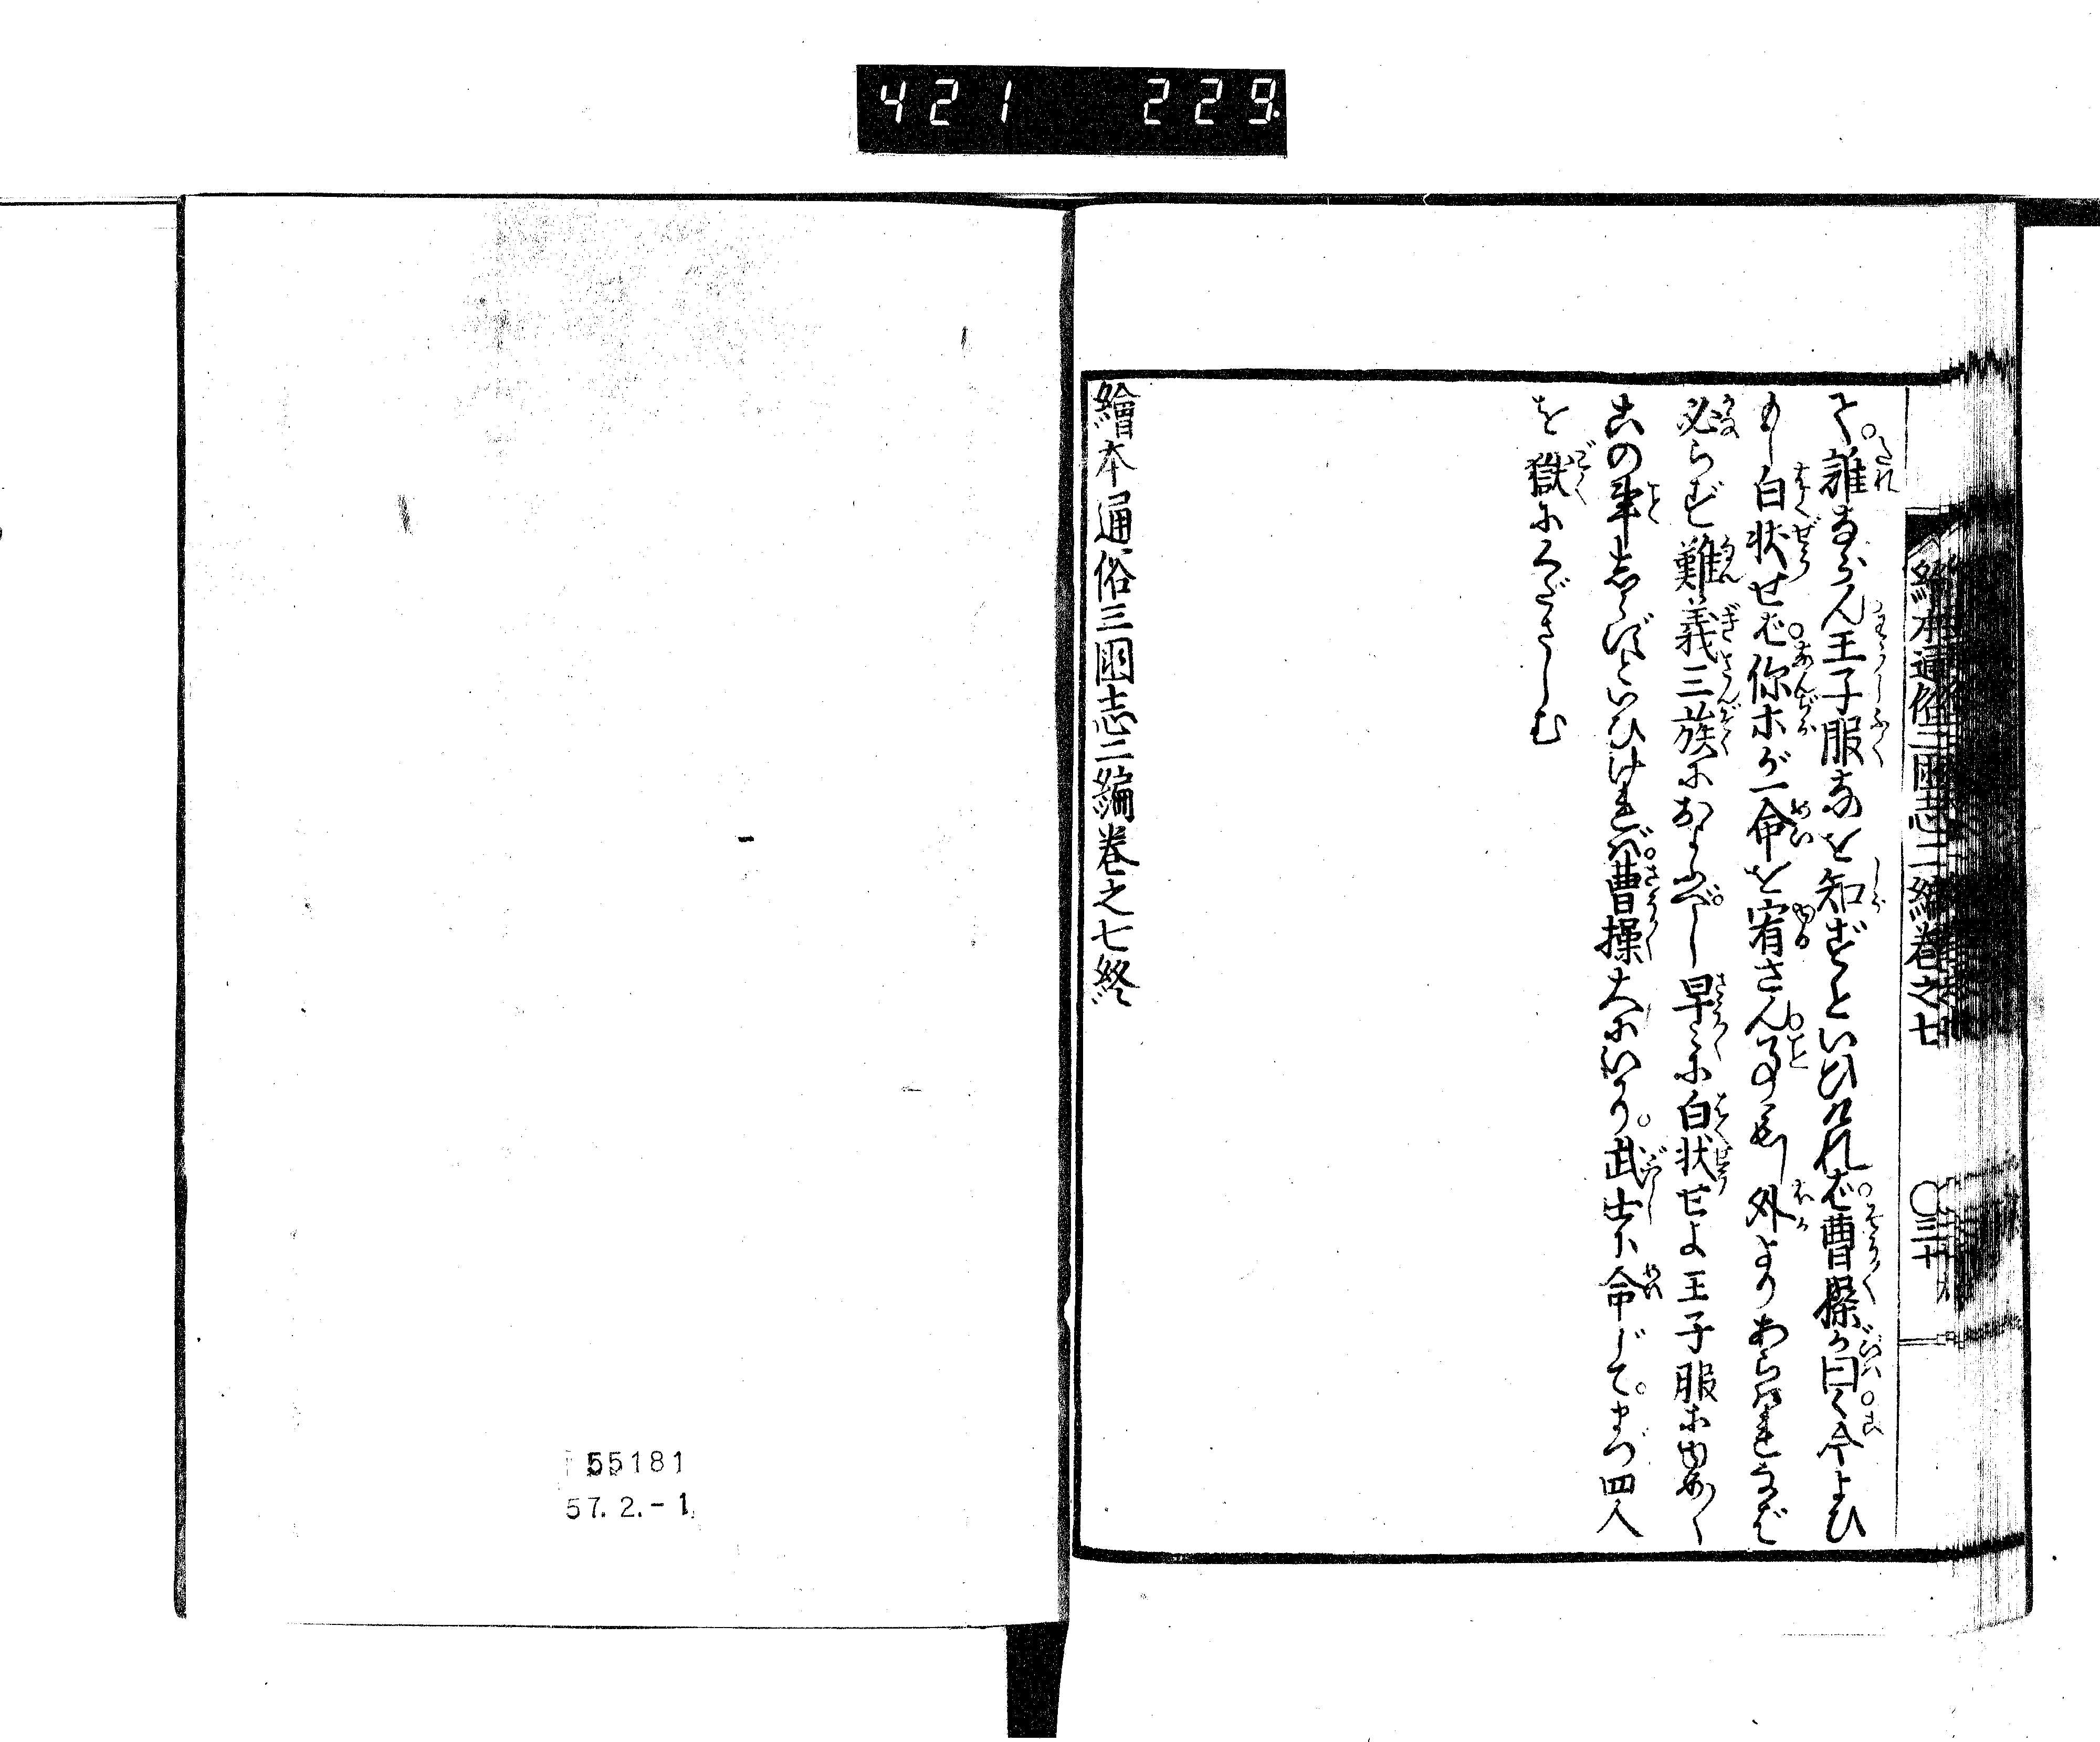 421 229
繪本通俗三國志二編卷之七 〇三十
て誰ならん王子服なを知ずといひければ曹操が曰く今よひ
もし白状せば你ホが一命を宥さん事もし外よりあらはれなば
必らず難義三族におよぶべし早〻に白状せよ王子服ホ日めく
この事しらずといひければ曹操大にいかり武士に命じてまづ四人
を獄にくださしむ
繪本通俗三國志二編卷之七終
55181
57.2.-1